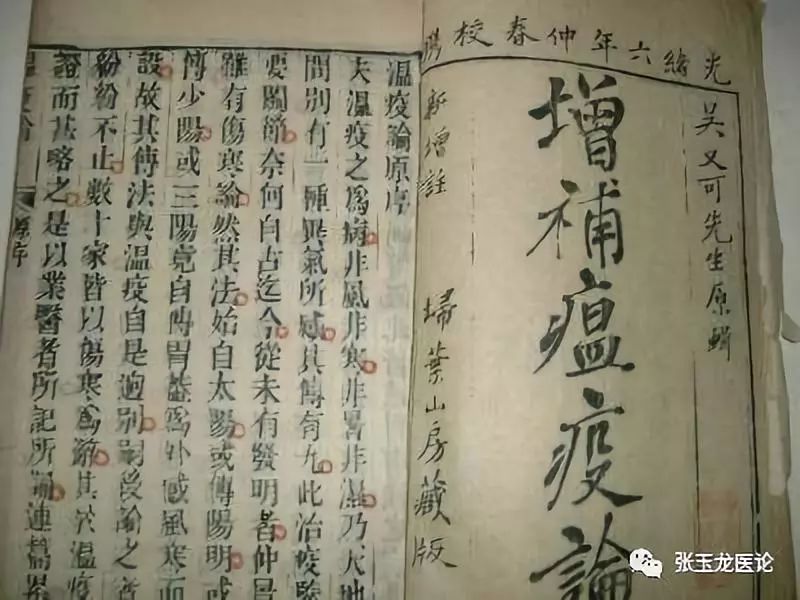 光緒六年仲春校
吳又可先生原輯
增補瘟疫論
新增註 掃葉山房藏版
溫疫論原序
夫溫疫之爲病非風非寒非暑非濕乃天地
間別有一種異氣所感其傳有九此治疫緊
要關節奈何自古迄今從未有發明者仲景
雖有傷寒論然其法始自太陽或傳陽明或
傳少陽或三陽竟自傳胃葢爲外感風寒而
設故其傳法與溫疫自是迥別嗣後論之者
紛紛不止數十家皆以傷寒爲辭其於溫疫
證而甚略之是以業醫者所記所誦連篇累
溫疫論 原序
张玉龙医论